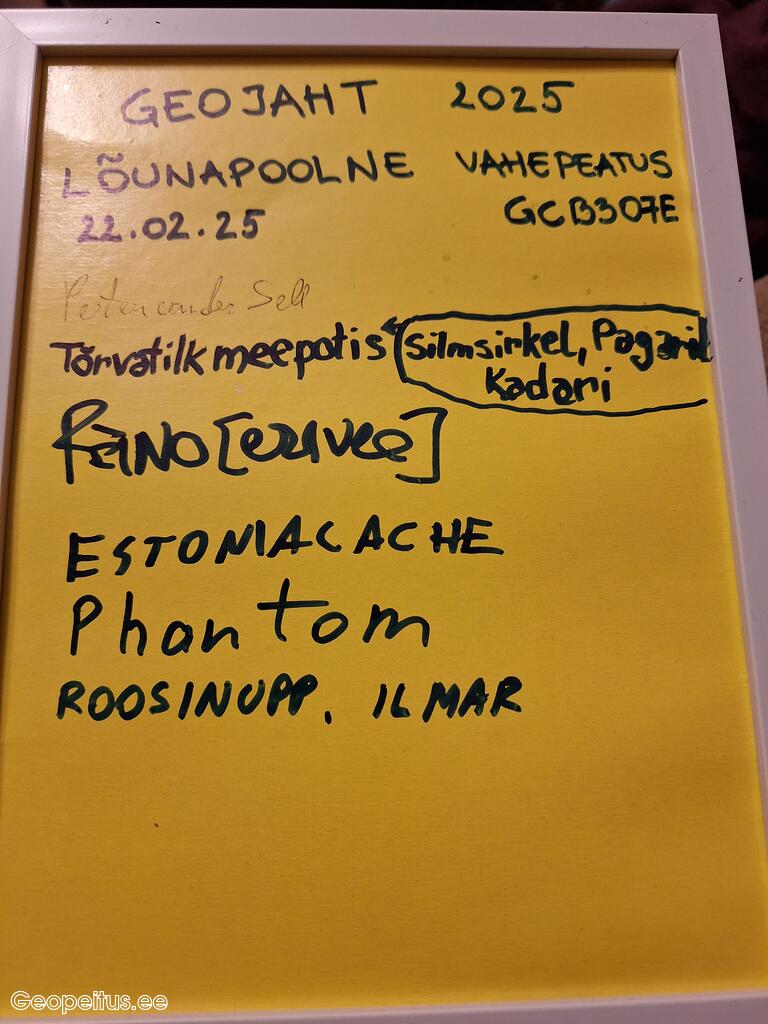 GEOJAHT 2025
LÕUNAPOOLNE VAHEPEATUS
22.02.25 GCB307E
Sell
Tõrvatilk meepotis (Silmsirkel, Pagarik
Kadari
RAINO [eravee]
ESTONIACACHE
Phantom
ROOSINUPP, ILMAR
Geopeitus.ee